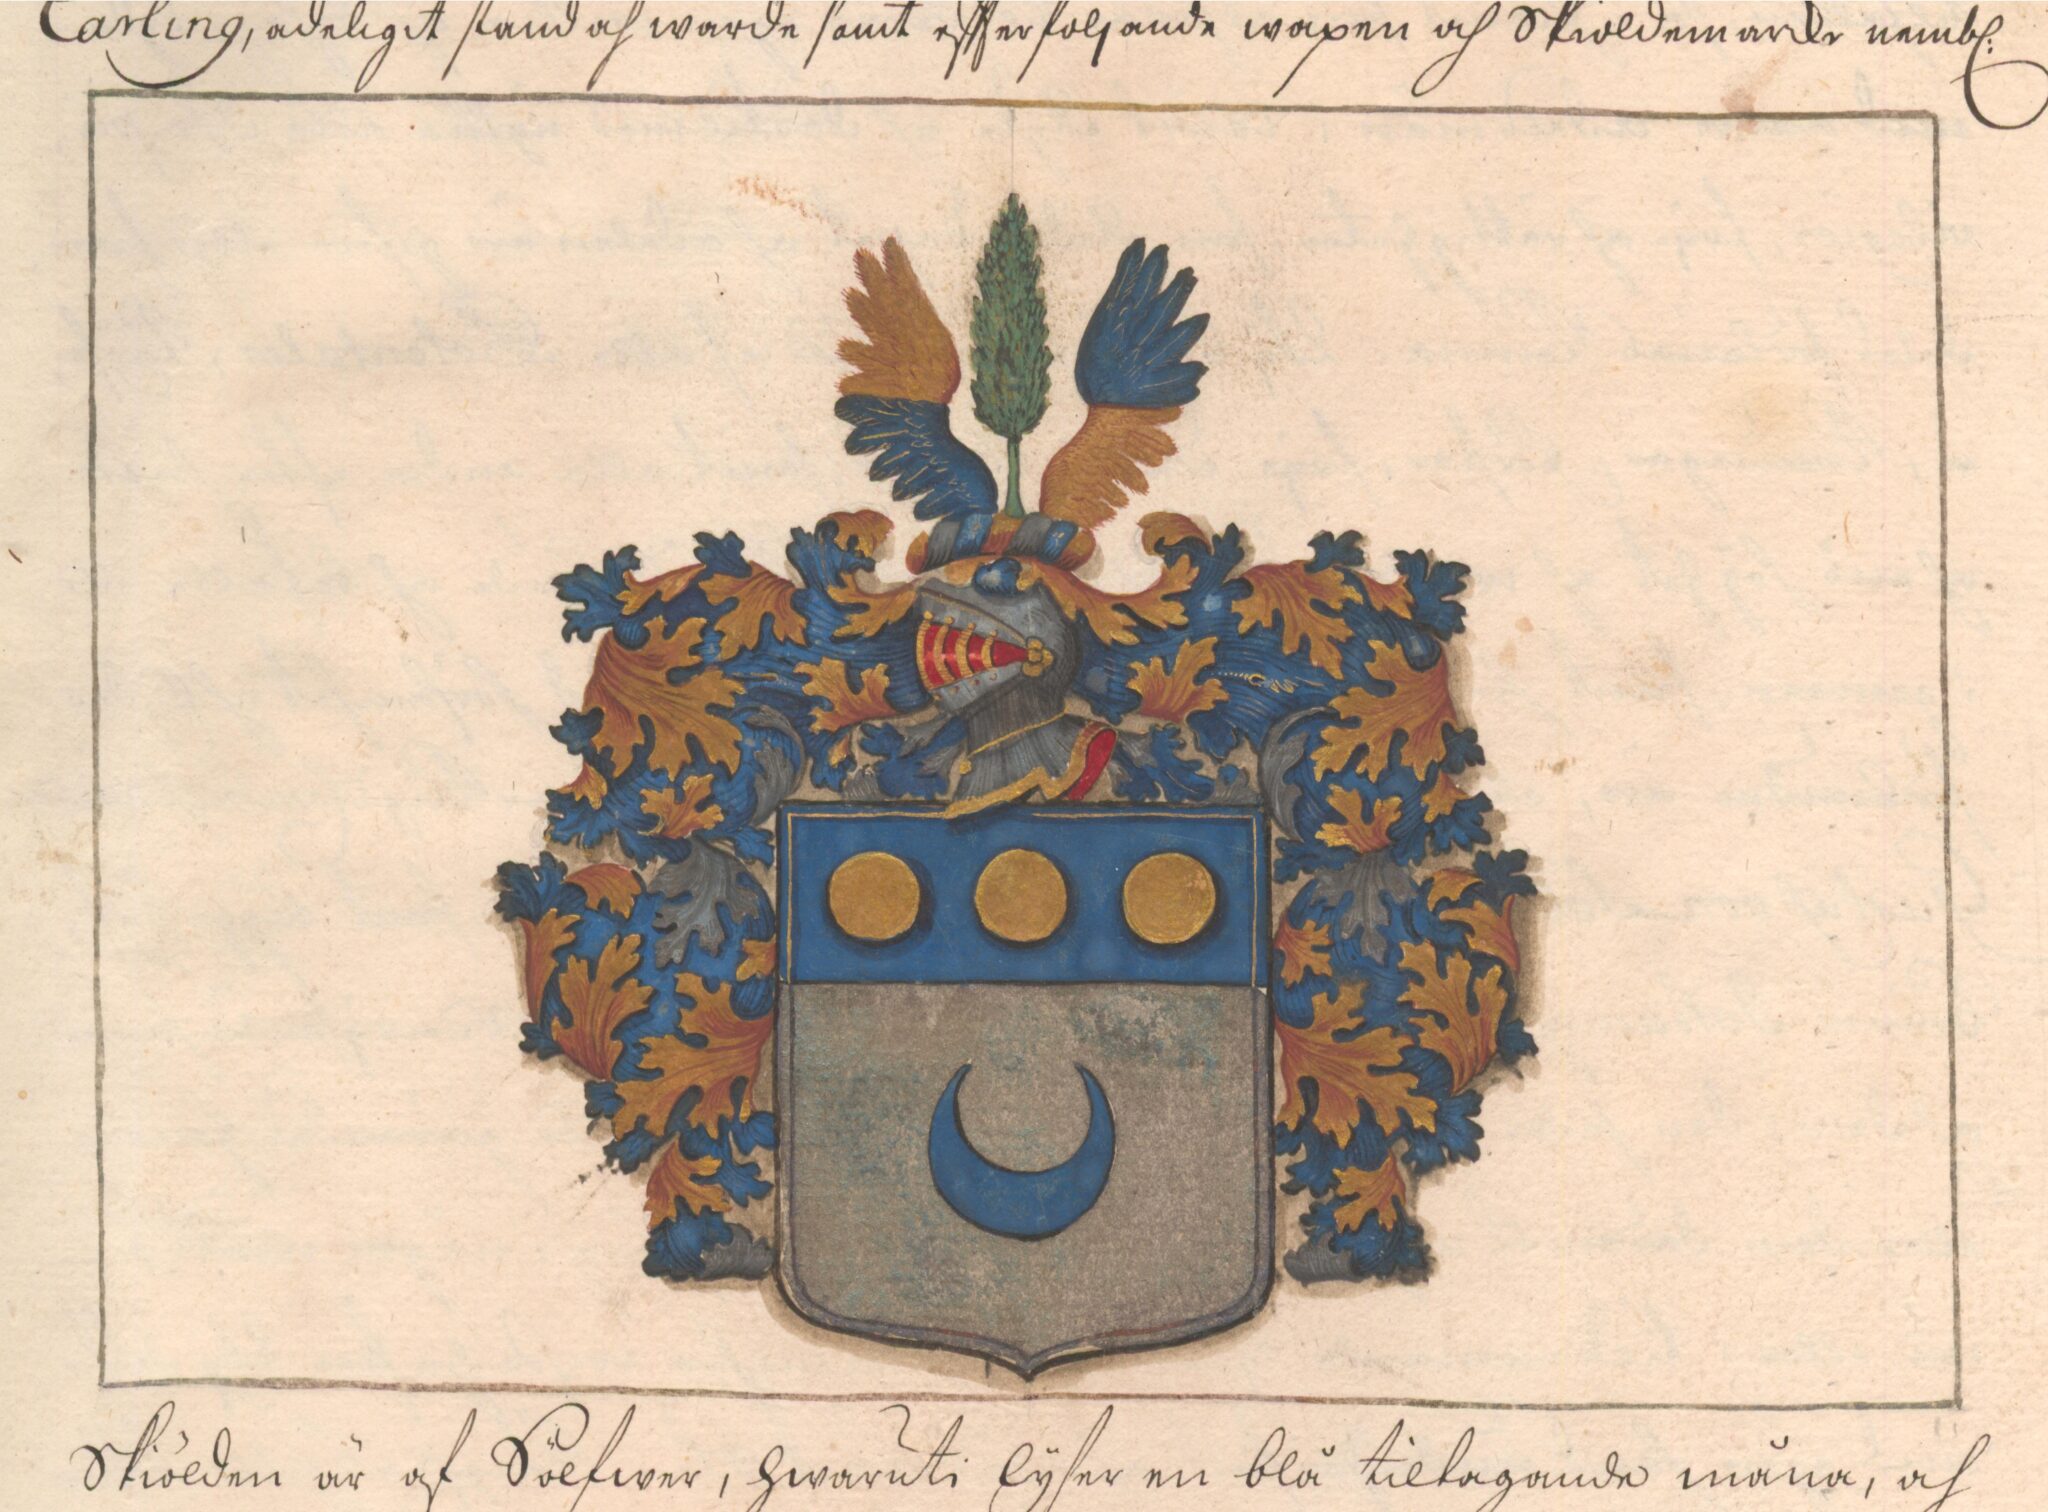 Carling, adeligit stand och warde samt efferfoljande wapen och Skioldemarke nembl:
Skiölden är af Sölfwer, hwaruti lÿser en blå tiltagande måna, och